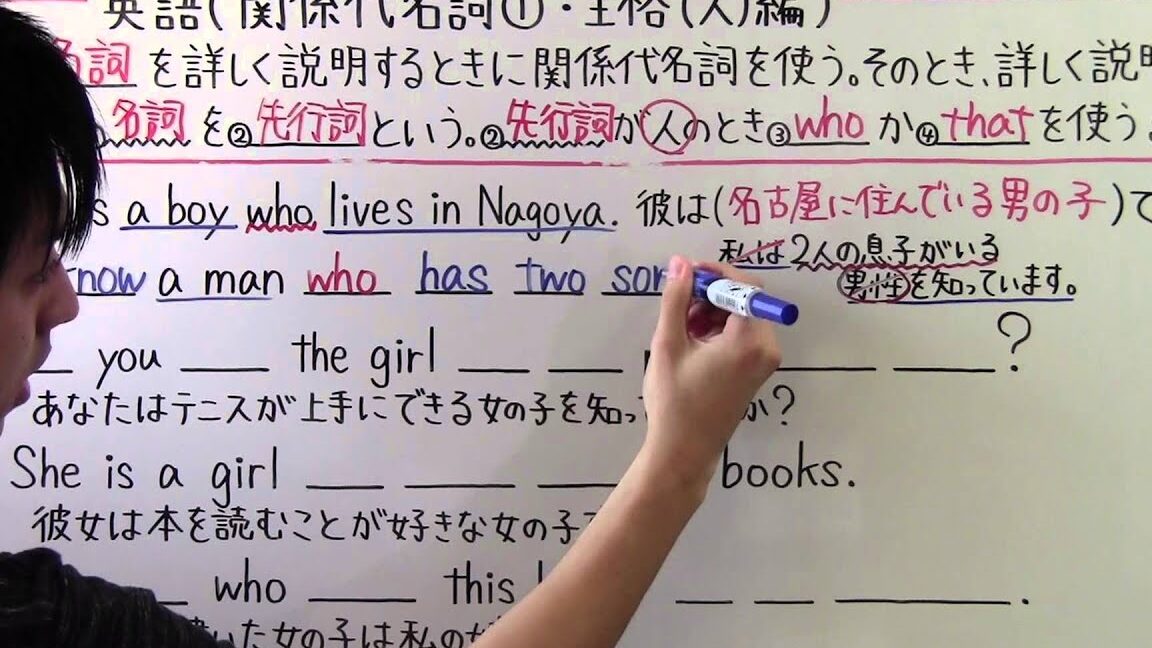 英語(関係代名詞①・主格(人)編)
名詞を詳しく説明するときに関係代名詞を使う。そのとき、詳しく説明
名詞を②先行詞という。②先行詞が人のとき③whoか④thatを使う。
a boy who lives in Nagoya. 彼は(名古屋に住んでいる男の子)
私は2人の息子がいる
know a man who has two son
男性を知っています。
you the girl ?
あなたはテニスが上手にできる女の子を知っ か?
She is a girl books.
彼女は本を読むことが好きな女の子
who this .
いた女の子は私の